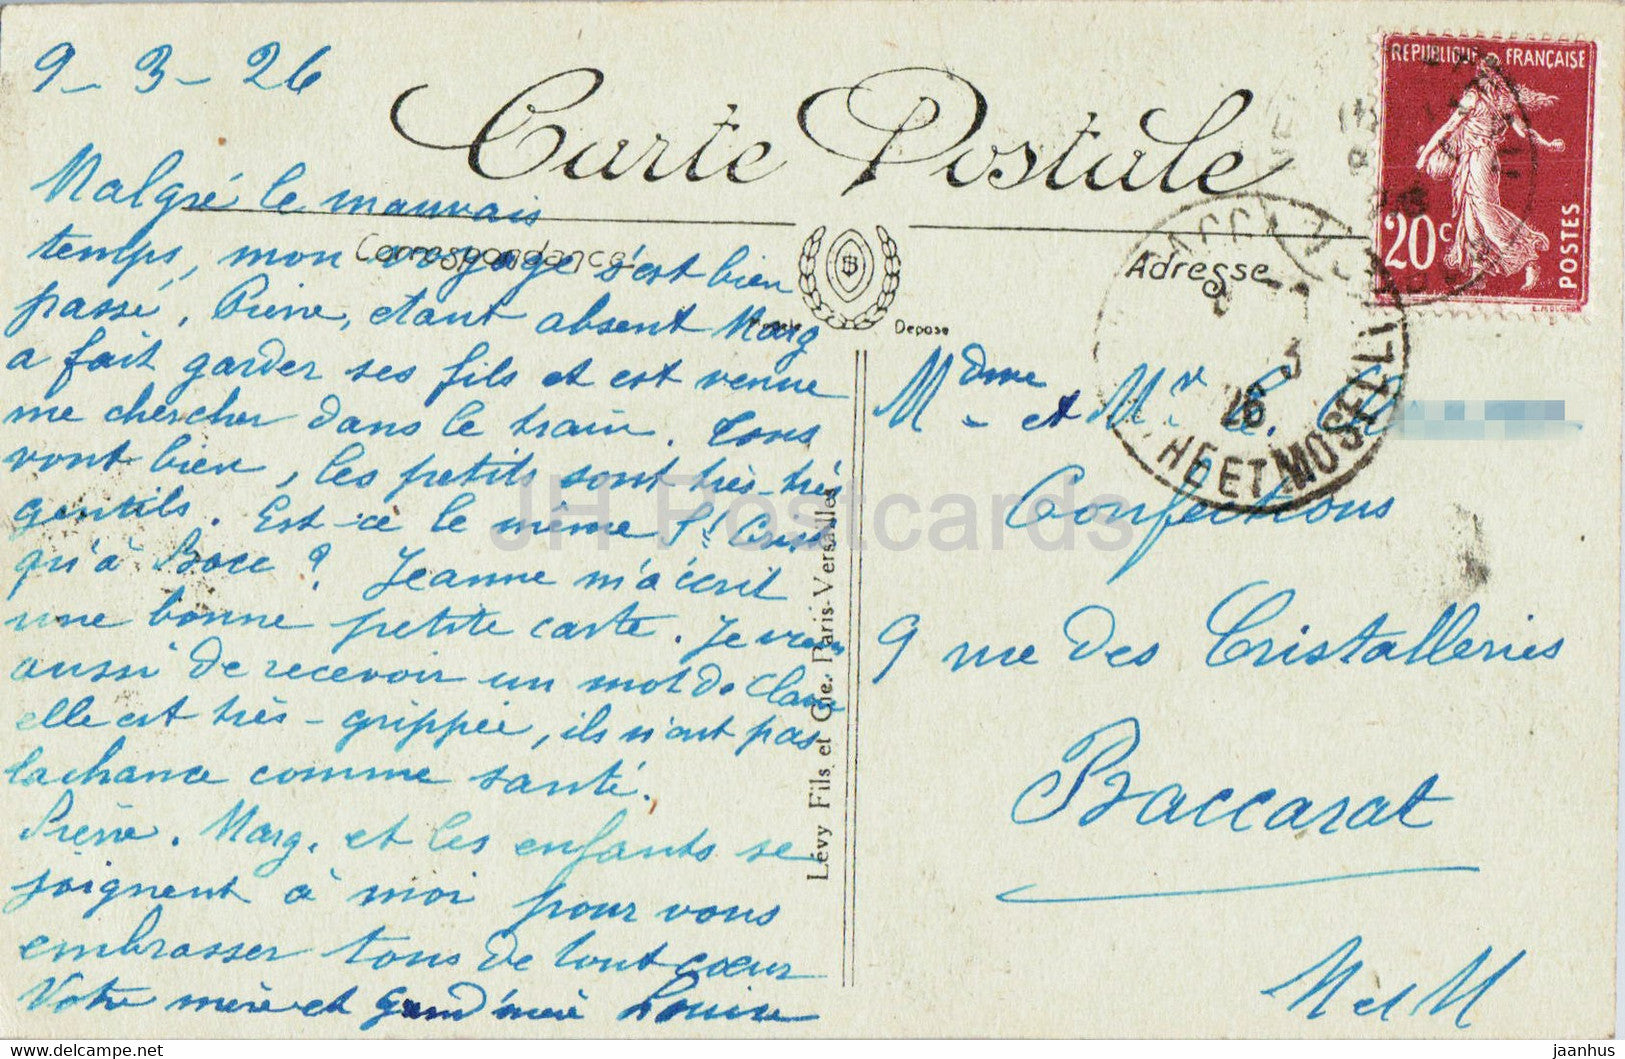 9-3-26
Carte Postale
Correspondance
Adresse
REPUBLIQUE FRANÇAISE
20c
POSTES
Malgré le mauvais
temps, mon voyage s'est bien
passé, Pierre, etant absent Marg
a fait garder ses fils et est venue
me chercher dans le train. Tous
vont bien, les petits sont très-très
gentils. Est-ce le même
qu'à Bacc ? Jeanne m'a écrit
une bonne petite carte. Je viens
aussi de recevoir un mot de Claire
elle est très-grippée, ils n'ont pas
la chance comme santé.
Pierre. Marg. et les enfants se
joignent à moi pour vous
embrasser tous de tout cœur
Votre mère et Grand'mère Louise
Deposé
Lévy Fils et Cie. Paris-Versailles
Mdme et Mr
Confections
9 rue des Cristalleries
Baccarat
M et M
BACCARAT
3
26
MEURTHE ET MOSELLE
JH Postcards
hipstamp.com/store/jh-postcards
jaanhus